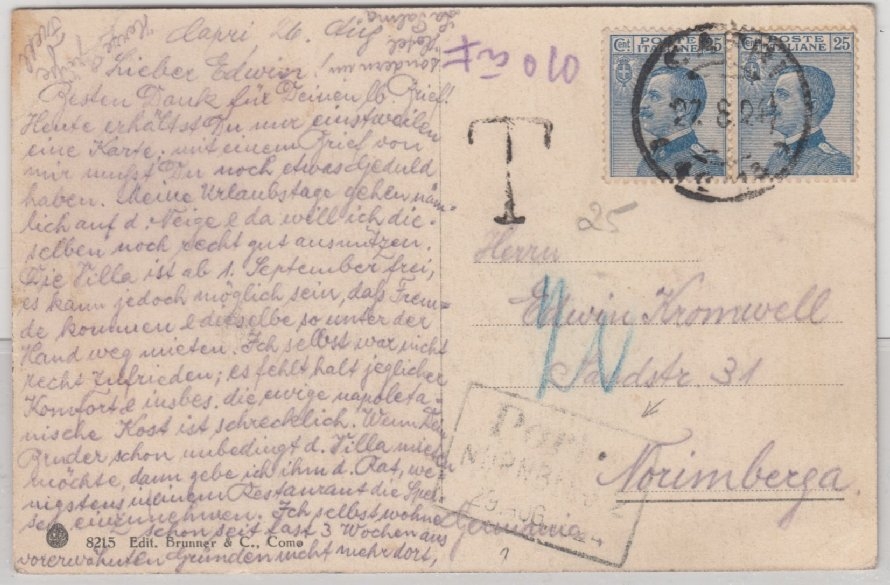 Capri, 26. Aug
Lieber Edwin!
Besten Dank für Deinen lb Brief!
Heute erhältst Du nur einstweilen
eine Karte; mit einem Brief von
mir mußt Du noch etwas Geduld
haben. Meine Urlaubstage gehen näm-
lich auf d. Neige & da will ich die-
selben noch recht gut ausnützen.
Die Villa ist ab 1. September frei,
es kann jedoch möglich sein, daß Frem-
de kommen & dieselbe so unter der
Hand weg mieten. Ich selbst war nicht
recht zufrieden; es fehlt halt jeglicher
Komfort & insbes. die ewige napoleta-
nische Kost ist schrecklich. Wenn Dein
Bruder schon unbedingt d. Villa mieten
möchte, dann gebe ich ihm d. Rat, we-
nigstens in einem Restaurant die Spei-
sen einzunehmen. Ich selbst wohne
schon seit fast 3 Wochen aus
vorerwähnten Gründen nicht mehr dort,
sondern im
Hotel
La Palma
8215 Edit. Brunner & C., Como
T
25
Cent 25
POSTE ITALIANE 25
27.8.24
Herrn
Edwin Kromwell
Sandstr 31
Norimberga
Germania
NÜRNBERG 2
29 AUG 24